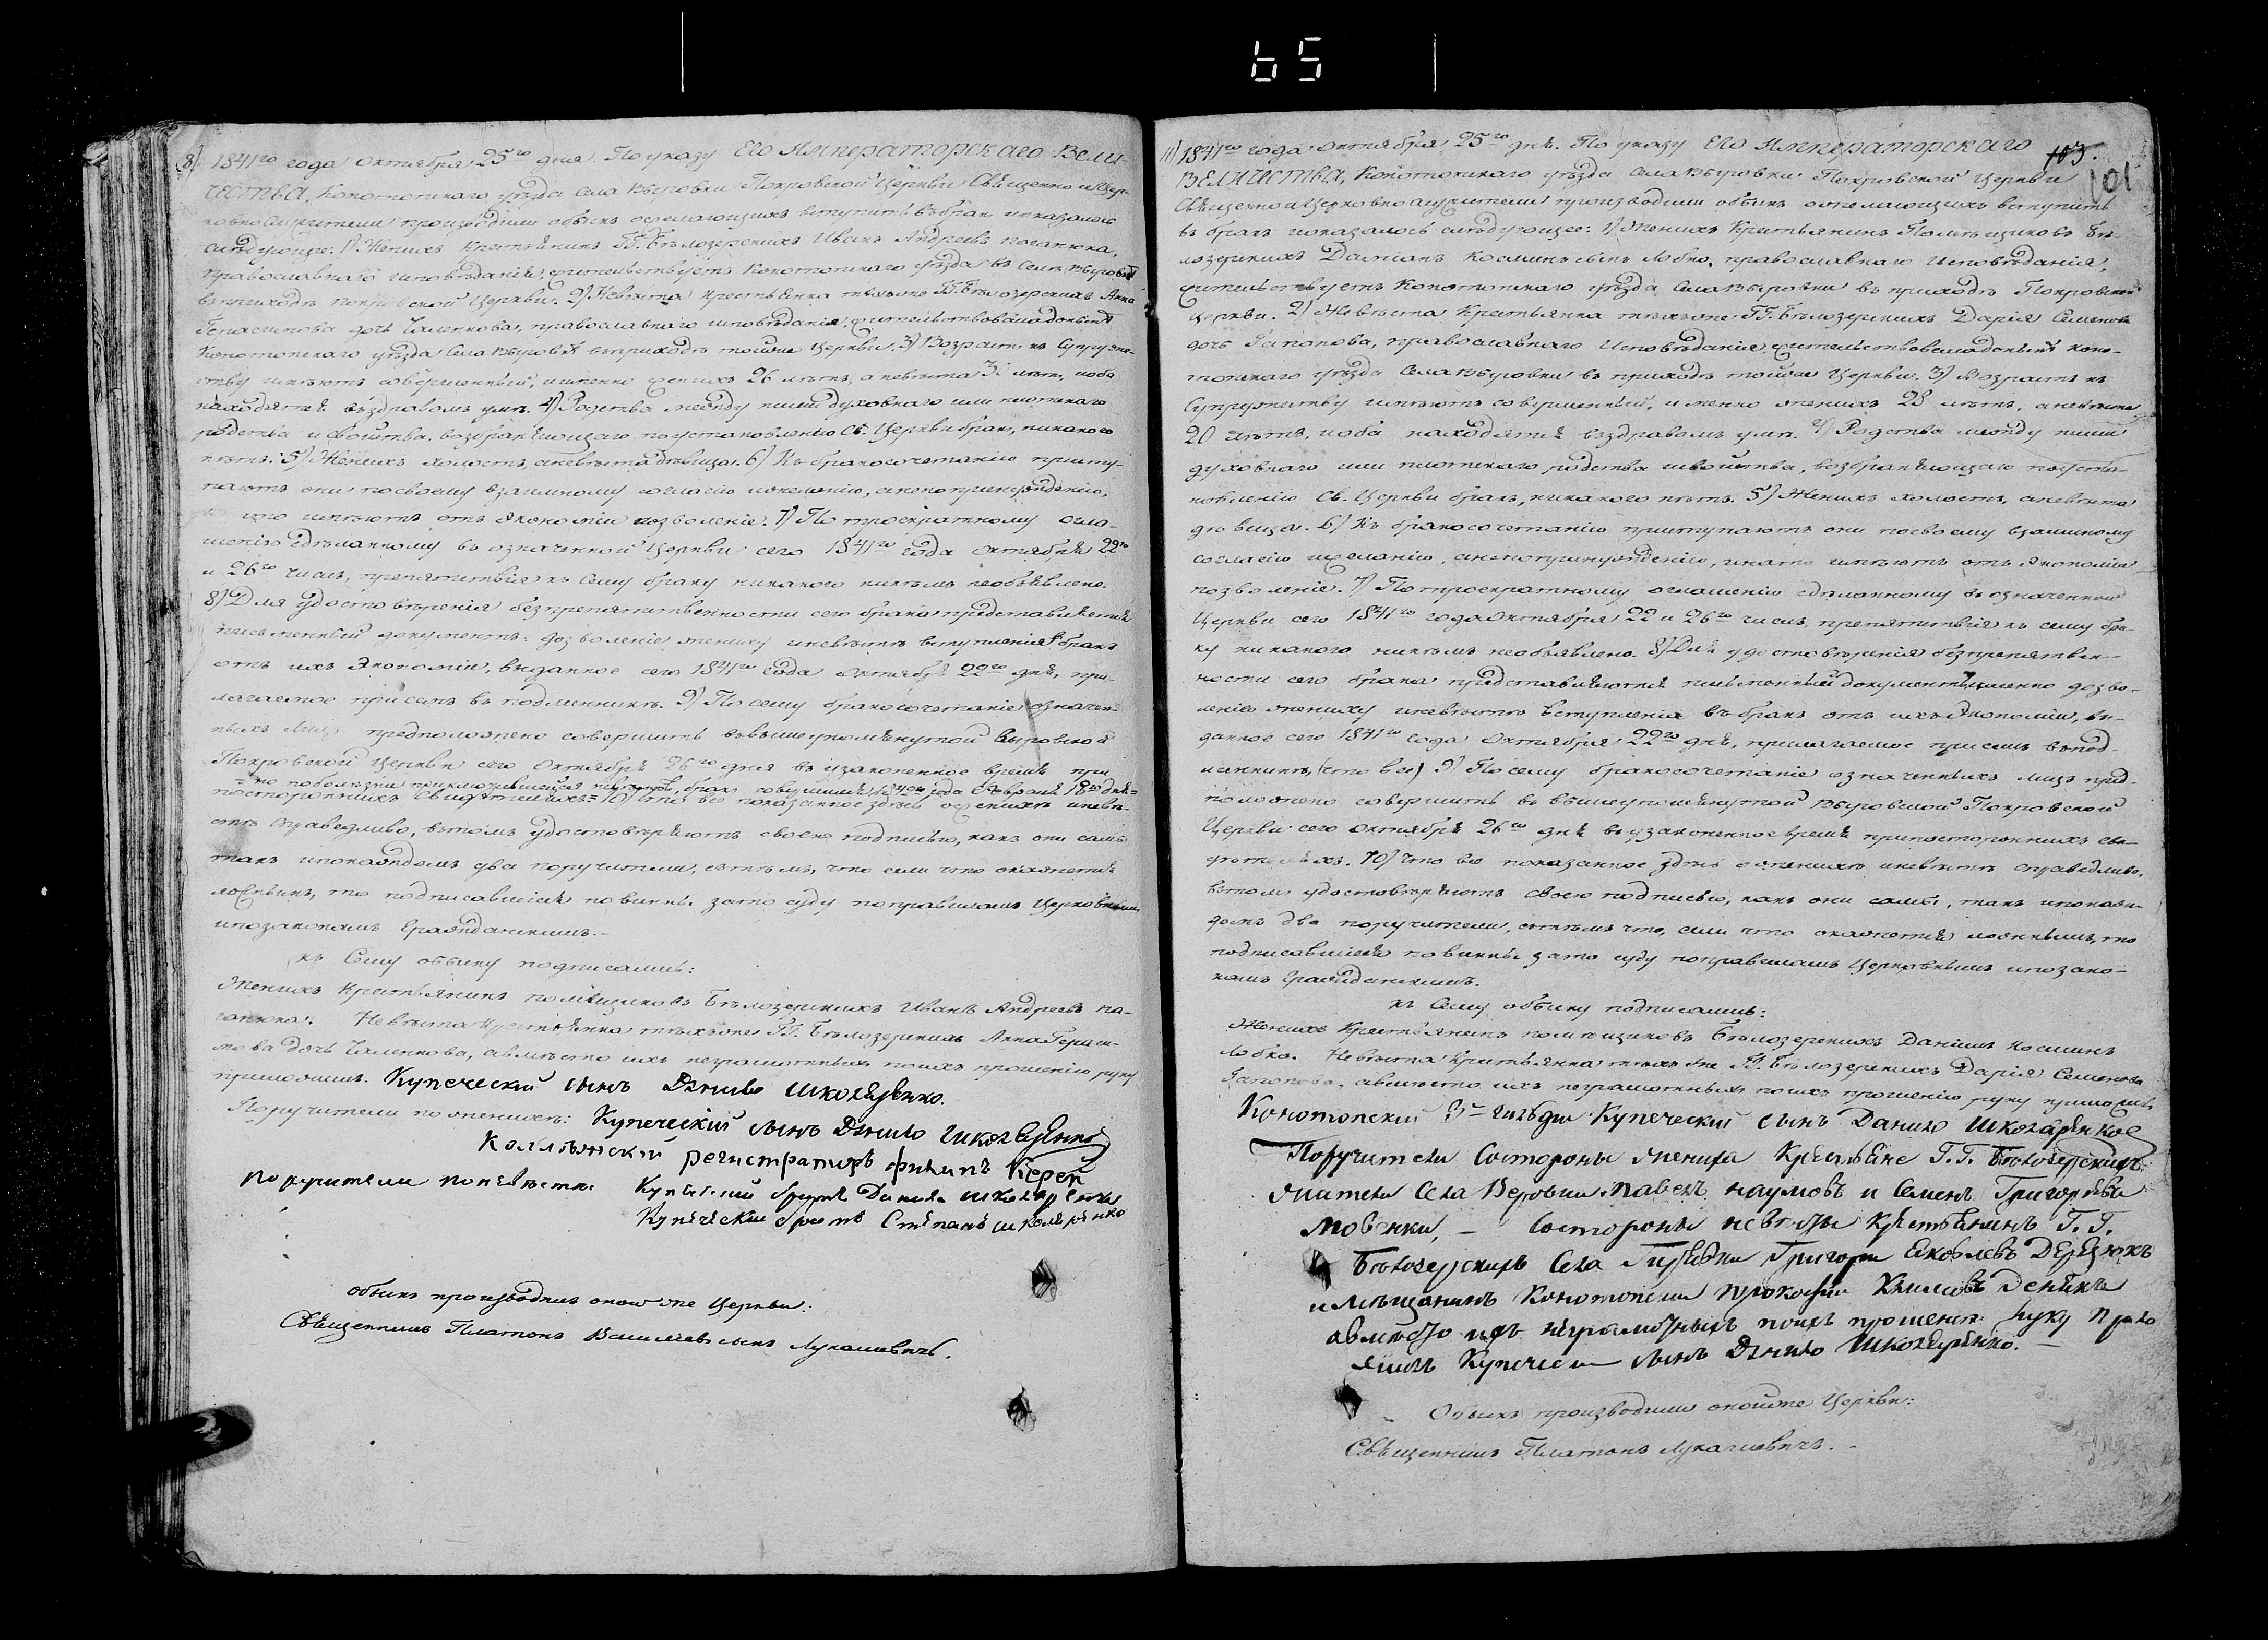 65
8) 1841го года Октября 25го дня. По указу Его Императорскаго Вели-
чества, Конотопскаго уѣзда села Выровки Покровской Церкви Священно и Цер-
ковно служители производили обыскъ о желающихъ вступить въ бракъ и оказалось
слѣдующее: 1) Женихъ крестьянинъ ГГ. Бѣлозерскихъ Иванъ Андреевъ
православнаго исповѣданія, жительствуетъ Конотопскаго уѣзда въ селѣ Выровкѣ
въ приходѣ Покровской Церкви. 2) Невѣста крестьянка тѣхъ же ГГ. Бѣлозерскихъ Анна
Герасимова дочь Чаленкова, православнаго исповѣданія, жительствовала донынѣ
Конотопскаго уѣзда села Выровки въ приходѣ той же Церкви. 3) Возрастъ къ супруже-
ству имѣютъ совершенный, именно женихъ 26 лѣтъ, а невѣста лѣтъ, и оба
находятся въ здравомъ умѣ. 4) Родства между ними духовнаго или плотскаго
родства и свойства, возбраняющаго по установленію Св. Церкви бракъ, никакого
нѣтъ. 5) Женихъ холостъ, а невѣста дѣвица. 6) Къ бракосочетанію присту-
паютъ они по своему взаимному согласію и желанію, а не по принужденію,
на что имѣютъ отъ экономіи позволеніе. 7) По троекратному огла-
шенію сдѣланному въ означенной Церкви сего 1841го года Октября 22го
и 26го числъ, препятствія къ сему браку никакого никѣмъ не объявлено.
8) Для удостовѣренія безпрепятственности сего брака представляется
письменный документъ: дозволеніе жениху и невѣстѣ вступленія въ бракъ
отъ ихъ Экономіи, выданное сего 1841го года Октября 22го дня, при-
лагаемое при семъ въ подлинникѣ. 9) По сему бракосочетаніе означен-
ныхъ лицъ предположено совершить въ вышеупомянутой Выровской
Покровской Церкви сего Октября 26го дня въ узаконенное время при
постороннихъ свидѣтеляхъ = 10) Что все показанное здѣсь о женихѣ и невѣ-
стѣ справедливо, въ томъ удостовѣряютъ своею подписью, какъ они сами
такъ и по каждомъ два поручители, съ тѣмъ, что если что окажется
ложнымъ, то подписавшіеся повинны за то суду по правиламъ Церковнымъ
и по законамъ Гражданскимъ. –
къ Сему обыску подписались:
Женихъ крестьянинъ помѣщиковъ Бѣлозерскихъ Иванъ Андреевъ
Невѣста крестьянка тѣхъ же ГГ. Бѣлозерскихъ Анна Гераси-
мова дочь Чаленкова, а вмѣсто ихъ неграмотныхъ по ихъ прошенію руку
приложилъ. Купеческій сынъ Данило Школяренко.
Поручители по женихѣ: Купеческій сынъ Данило Школяренко
Коллежскій регистраторъ Филипъ Керей
Поручители по невѣстѣ: Купеческий братъ Данила Школяренко
Купеческій братъ Степанъ Школяренко
обыскъ производилъ оной же Церкви:
Священникъ Платонъ Василіевъ сынъ Лукашевичъ.
103.
101
11) 1841го года Октября 25го дня. По указу Его Императорскаго
Величества, Конотопскаго уѣзда села Выровки Покровской Церкви
Священно и Церковно служители производили обыскъ о желающихъ вступить
въ бракъ и оказалось слѣдующее: 1) Женихъ крестьянинъ Помѣщиковъ Бѣ-
лозерскихъ Даніилъ Косминъ сынъ Лобко, православнаго исповѣданія,
жительствуетъ Конотопскаго уѣзда села Выровки въ приходѣ Покровской
Церкви. 2) Невѣста Крестьянка тѣхъ же ГГ. Бѣлозерскихъ Дарія Семенова
дочь Гапонова, православнаго исповѣданія, жительствовала донынѣ Коно-
топскаго уѣзда села Выровки въ приходѣ той же Церкви. 3) Возрастъ къ
супружеству имѣютъ совершенный, именно женихъ 23 лѣтъ, а невѣста
20 лѣтъ, и оба находятся въ здравомъ умѣ. 4) Родства между ними
духовнаго или плотскаго родства и свойства, возбраняющаго по уста-
новленію Св. Церкви бракъ, никакого нѣтъ. 5) Женихъ холостъ, а невѣста
дѣвица. 6) Къ бракосочетанію приступаютъ они по своему взаимному
согласію и желанію, а не по принужденію, и на то имѣютъ отъ Экономіи
позволеніе. 7) По троекратному оглашенію сдѣланному въ означенной
Церкви сего 1841го года Октября 22 и 26го числъ, препятствія къ сему бра-
ку никакого никѣмъ не объявлено. 8) Для удостовѣренія безпрепятствен-
ности сего брака представляется письменный документъ, именно дозво-
леніе жениху и невѣстѣ вступленія въ бракъ отъ ихъ Экономіи, вы-
данное сего 1841го года Октября 22го дня, прилагаемое при семъ въ под-
линникѣ, 9) По сему бракосочетаніе означенныхъ лицъ пред-
положено совершить въ вышеупомянутой Выровской Покровской
Церкви сего Октября 26го дня въ узаконенное время при постороннихъ сви-
дѣтеляхъ. 10) Что все показанное здѣсь о женихѣ и невѣстѣ справедливо,
въ томъ удостовѣряютъ своею подписью, какъ они сами, такъ и по каж-
домъ два поручители, съ тѣмъ что, если что окажется ложнымъ, то
подписавшіеся повинны за то суду по правиламъ Церковнымъ и по зако-
намъ Гражданскимъ.
къ Сему обыску подписались:
Женихъ Крестьянинъ помѣщиковъ Бѣлозерскихъ Даніилъ Косминъ
Лобко. Невѣста Крестьянка тѣхъ же ГГ. Бѣлозерскихъ Дарія Семенова
Гапонова, а вмѣсто ихъ неграмотныхъ по ихъ прошенію руку приложилъ
Конотопский 3й гильдии Купеческий сынъ Данило Школяренко
Поручители со стороны жениха Крестьяне Г.Г. Бѣлозерскихъ
жители села Веровки Павелъ Наумовъ и Семенъ Григорьевъ
Мовенки, – со стороны невѣсты крестьянинъ Г.Г.
Бѣлозерскихъ села Григори Яковлевъ
и мѣщанинъ Конотопски Прокофий
а вмѣсто ихъ неграмотныхъ по ихъ прошению руку прило
жилъ Купечески сынъ Данило Школяренко. –
Обыскъ производили оной же Церкви:
Священникъ Платонъ Лукашевичъ. –